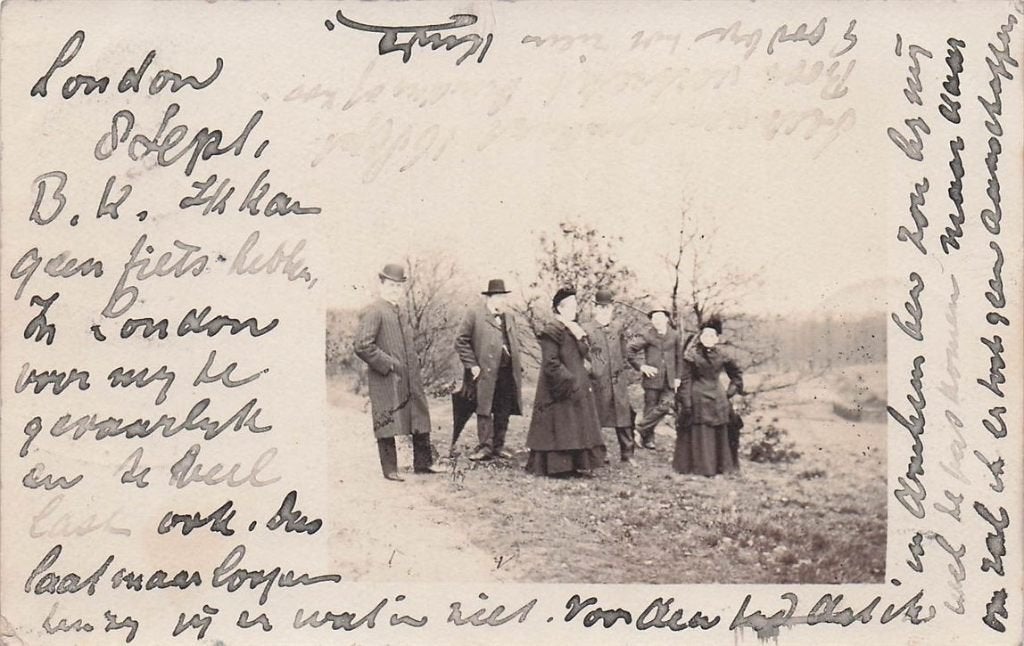 London
8 Sept,
B. K. Ik kan
geen fiets hebben,
In London
voor my te
gevaarlyk
en te veel
last ook. Dus
laat maar loopen
tenzy jy er wat in ziet. Voor den tyd dat ik
in Arnhem ben zou hy my
wel te pas komen maar daar
om zal ik er toch geen aanschaffen